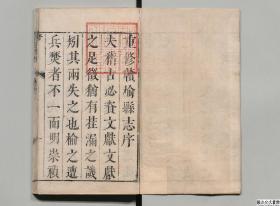 重修贛榆縣志序
夫稽古必資文獻文獻
之足徵猶有挂漏之譏
矧其兩失之也榆之遭
兵燹者不一而明崇禎